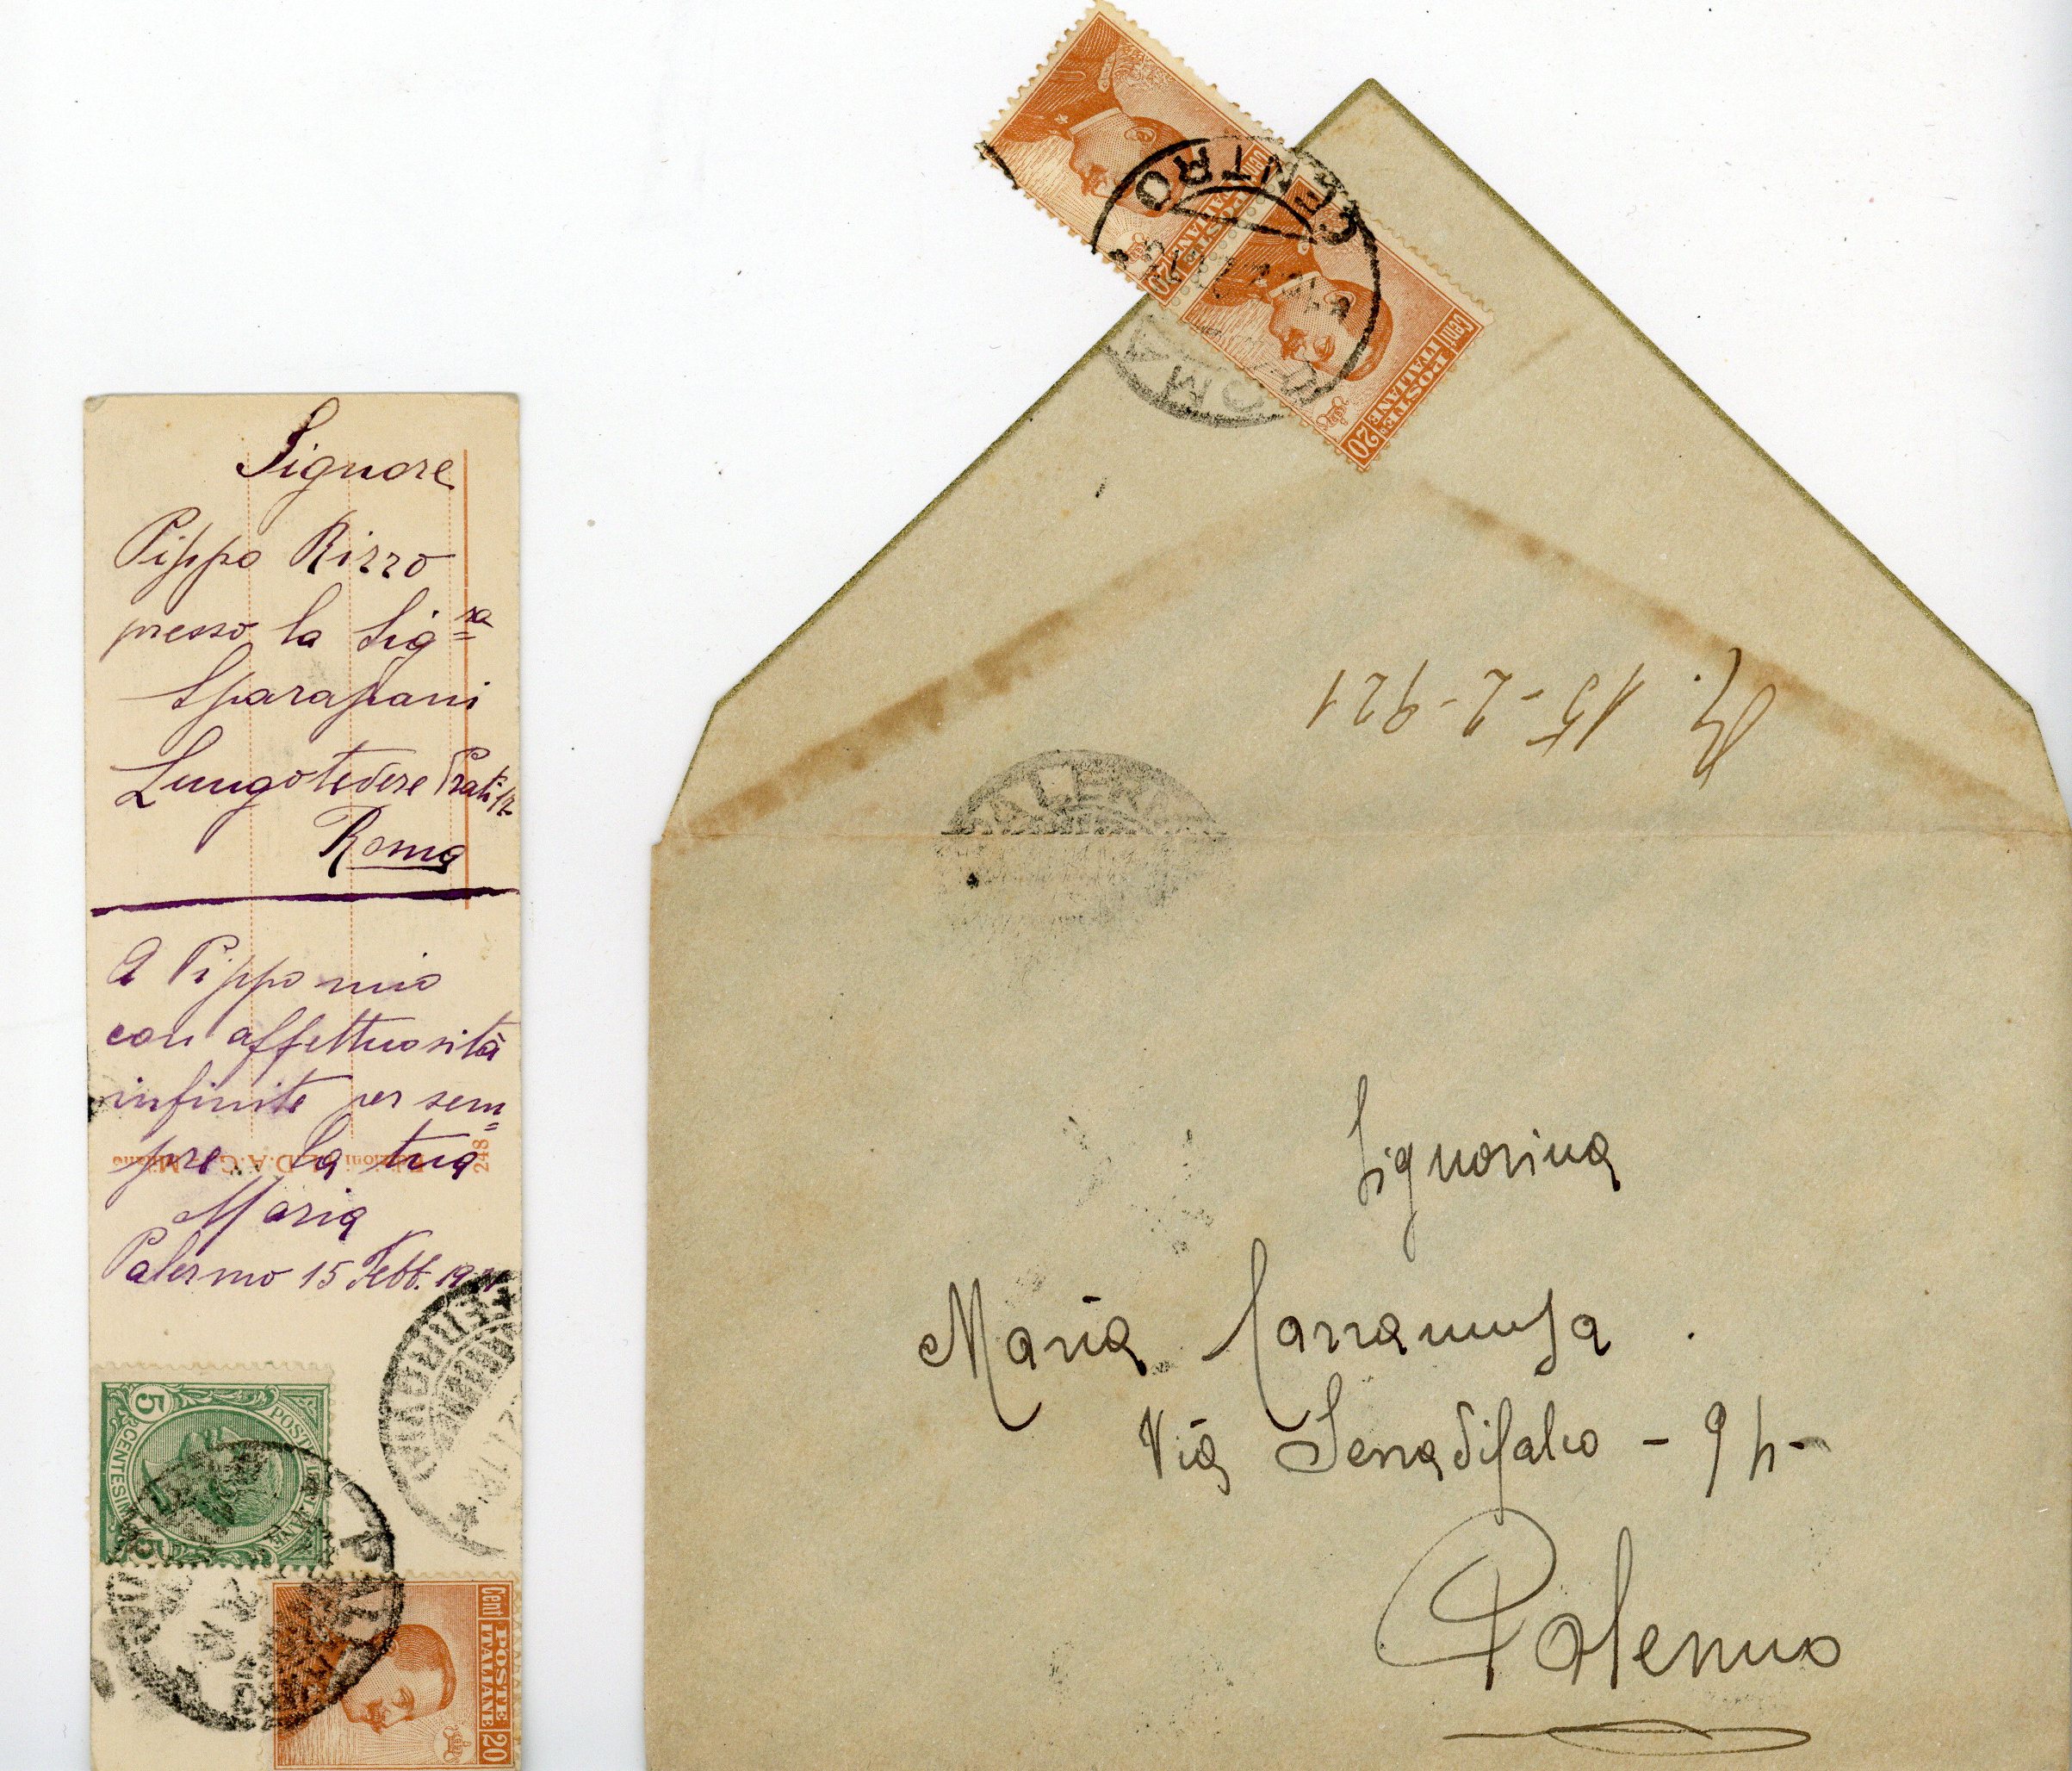 Signore
Pippo Rizzo
presso la Sig.ra
Sparapani
Lungotevere Prati 12
Roma
A Pippo mio
con affettuosità
infinite per sem=
pre la tua
Maria
Palermo 15 Febb. 1921
Edizioni D.A.G. Milano
248
5
POSTE ITALIANE
CENTESIMI
FERROVIA
Cent 20
POSTE
ITALIANE
Cent 20
POSTE
ITALIANE
Cent 20
POSTE
ITALIANE
ROMA
CENTRO
15-2-921
PALERMO
Signorina
Maria Carramusa
Via Serradifalco - 94 -
Palermo